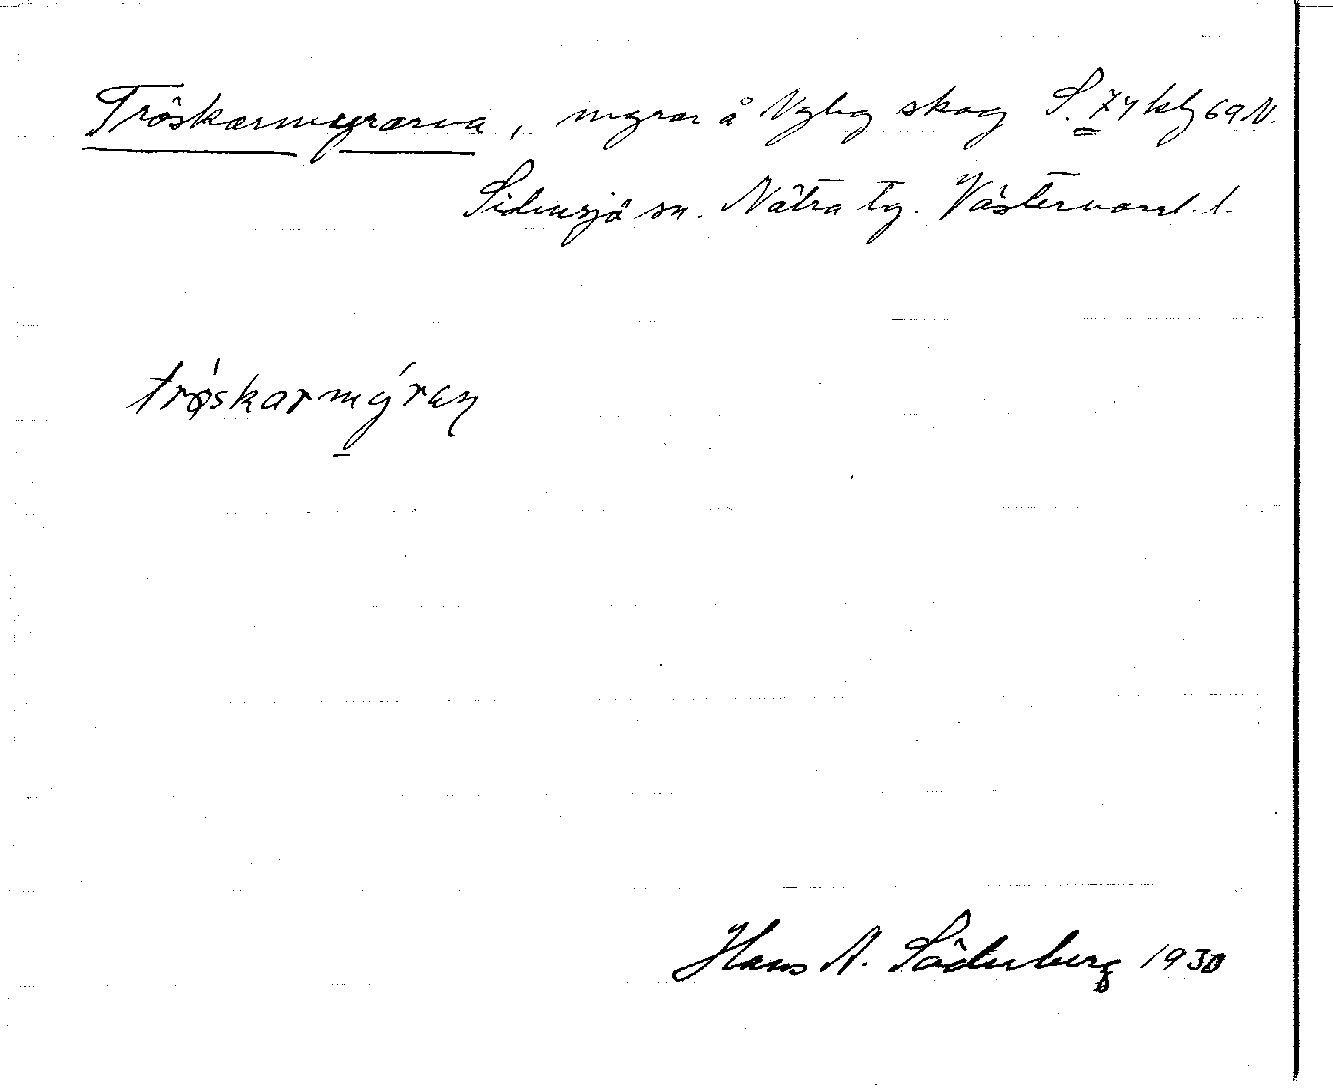 Tröskarmyrarna, myrar å Nyby skog S.
Sidensjö sn. Nätra tg. Västernorrl. l.
trøskarmýrạn
Hans A. Söderberg 1930